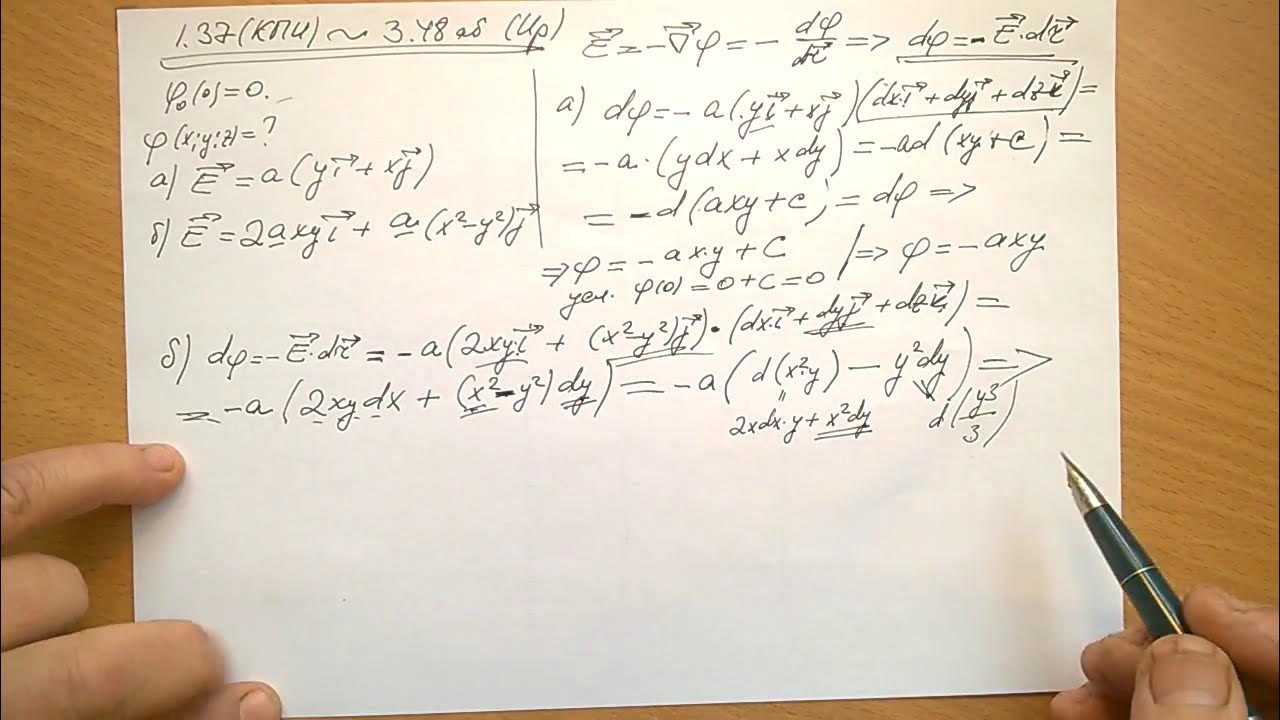 1.37 (КПИ) ~ 3.48 аб (Ир)
φ₀(0) = 0.
φ(x; y; z) = ?
а) E⃗ = a(yi⃗ + xj⃗)
б) E⃗ = 2axyi⃗ + a(x² - y²)j⃗
E⃗ = -∇⃗φ = - dφ/dr⃗ => dφ = -E⃗·dr⃗
а) dφ = -a(yi⃗ + xj⃗)(dx·i⃗ + dyj⃗ + dzk⃗) =
= -a·(ydx + xdy) = -ad(xy + C) =
= -d(axy + C) = dφ =>
=> φ = -ax·y + C
усл. φ(0) = 0 + C = 0
=> φ = -axy
б) dφ = -E⃗·dr⃗ = -a(2xyi⃗ + (x² - y²)j⃗)·(dx·i⃗ + dyj⃗ + dzk⃗) =
= -a(2xydx + (x² - y²)dy) = -a(d(x²·y) - y²dy) =>
2xdx·y + x²dy
d(y³/3)